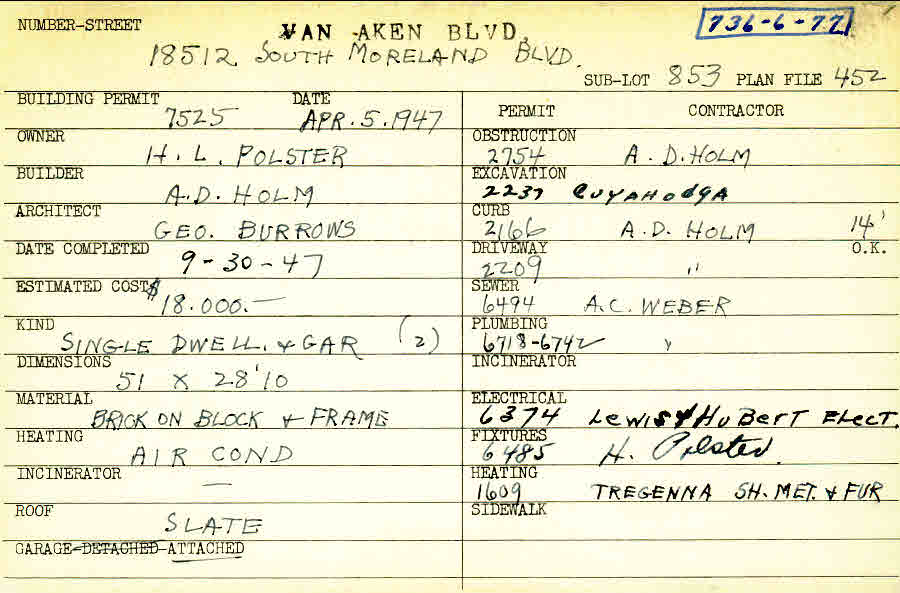 NUMBER-STREET VAN AKEN BLVD. 736-6-77
18512 SOUTH MORELAND BLVD.
SUB-LOT 853 PLAN FILE 452
BUILDING PERMIT 7525 DATE APR. 5. 1947
OWNER H. L. POLSTER
BUILDER A. D. HOLM
ARCHITECT GEO. BURROWS
DATE COMPLETED 9-30-47
ESTIMATED COST $18.000.—
KIND SINGLE DWELL. & GAR (2)
DIMENSIONS 51 X 28'10
MATERIAL BRICK ON BLOCK & FRAME
HEATING AIR COND
INCINERATOR —
ROOF SLATE
GARAGE-DETACHED-ATTACHED
PERMIT CONTRACTOR
OBSTRUCTION 2754 A. D. HOLM
EXCAVATION 2237 CUYAHOGA
CURB 2166 A.D. HOLM 14'
DRIVEWAY 2209 " O.K.
SEWER 6494 A.C. WEBER
PLUMBING 6718-6742 "
INCINERATOR
ELECTRICAL 6374 LEWIS & HUBERT ELECT.
FIXTURES 6485 H. Polster.
HEATING 1609 TREGENNA SH. MET. & FUR
SIDEWALK